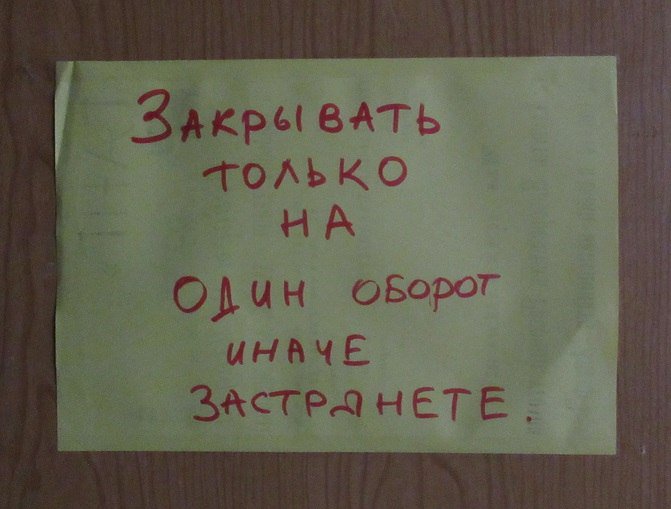 Закрывать
только
на
один оборот
иначе
застрянете.